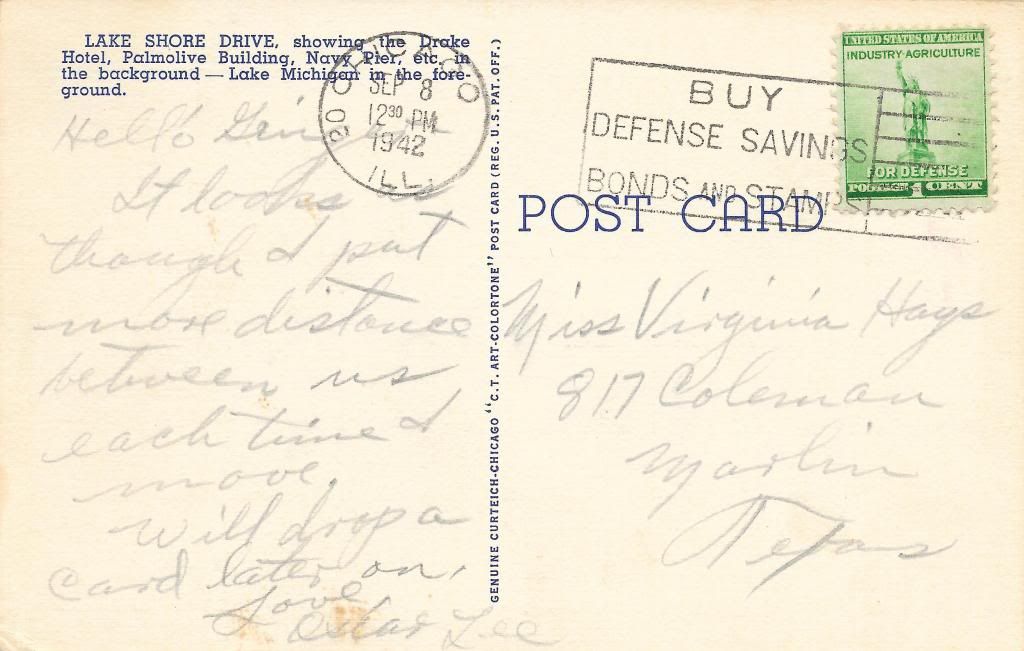 LAKE SHORE DRIVE, showing the Drake
Hotel, Palmolive Building, Navy Pier, etc. in
the background — Lake Michigan in the fore-
ground.
20 CHICAGO
SEP 8
12 30 PM
1942
ILL.
Hello
It looks as
though I put
more distance
between us
each time I
move.
Will drop a
card later on.
Love
Oscar Lee
GENUINE CURTEICH-CHICAGO "C.T. ART-COLORTONE" POST CARD (REG. U.S. PAT. OFF.)
BUY
DEFENSE SAVINGS
BONDS AND STAMPS
UNITED STATES OF AMERICA
INDUSTRY-AGRICULTURE
FOR DEFENSE
POSTAGE 1 CENT
POST CARD
Miss Virginia Hays
817 Coleman
Marlin
Texas